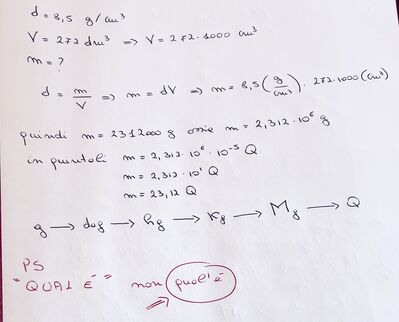 d = 8,5 g/cm³
V = 272 dm³ ⟹ V = 272·1000 cm³
m = ?
d = m/V ⟹ m = dV ⟹ m = 8,5 (g/cm³) · 272·1000 (cm³)
quindi m = 2312000 g ossia m = 2,312·10⁶ g
in quintali m = 2,312·10⁶·10⁻⁵ Q
m = 2,312·10¹ Q
m = 23,12 Q
g → dag → hg → Kg → Mg → Q
PS
"QUAL È" non qual'è